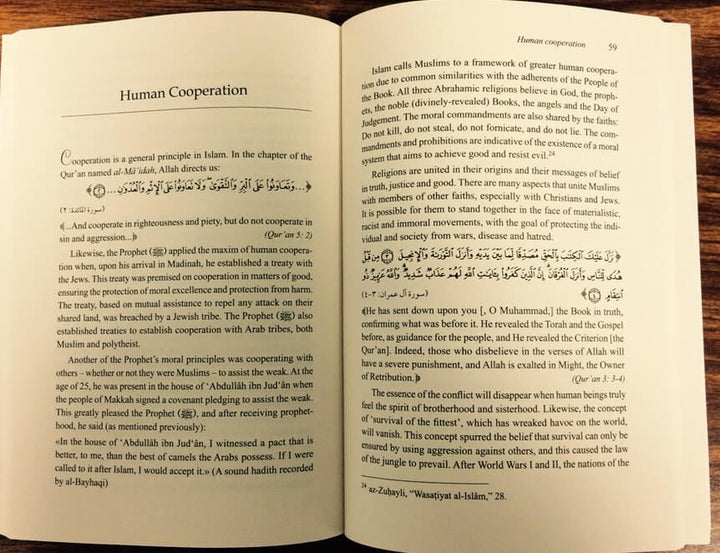 Human Cooperation
Cooperation is a general principle in Islam. In the chapter of the
Qur'an named al-Mâ'idah, Allah directs us:
﴿...وَتَعَاوَنُوا۟ عَلَى ٱلْبِرِّ وَٱلتَّقْوَىٰ ۖ وَلَا تَعَاوَنُوا۟ عَلَى ٱلْإِثْمِ وَٱلْعُدْوَٰنِ ... ۝٢﴾
(سورة المائدة: ٢)
﴾...And cooperate in righteousness and piety, but do not cooperate in
sin and aggression...﴿ (Qur'an 5: 2)
Likewise, the Prophet (ﷺ) applied the maxim of human coopera-
tion when, upon his arrival in Madinah, he established a treaty with
the Jews. This treaty was premised on cooperation in matters of good,
ensuring the protection of moral excellence and protection from harm.
The treaty, based on mutual assistance to repel any attack on their
shared land, was breached by a Jewish tribe. The Prophet (ﷺ) also
established treaties to establish cooperation with Arab tribes, both
Muslim and polytheist.
Another of the Prophet's moral principles was cooperating with
others – whether or not they were Muslims – to assist the weak. At the
age of 25, he was present in the house of 'Abdullâh ibn Jud'ân when
the people of Makkah signed a covenant pledging to assist the weak.
This greatly pleased the Prophet (ﷺ), and after receiving prophet-
hood, he said (as mentioned previously):
«In the house of 'Abdullâh ibn Jud'ân, I witnessed a pact that is
better, to me, than the best of camels the Arabs possess. If I were
called to it after Islam, I would accept it.» (A sound hadith recorded
by al-Bayhaqi)
Human cooperation 59
Islam calls Muslims to a framework of greater human coopera-
tion due to common similarities with the adherents of the People of
the Book. All three Abrahamic religions believe in God, the proph-
ets, the noble (divinely-revealed) Books, the angels and the Day of
Judgement. The moral commandments are also shared by the faiths:
Do not kill, do not steal, do not fornicate, and do not lie. The com-
mandments and prohibitions are indicative of the existence of a moral
system that aims to achieve good and resist evil.24
Religions are united in their origins and their messages of belief
in truth, justice and good. There are many aspects that unite Muslims
with members of other faiths, especially with Christians and Jews.
It is possible for them to stand together in the face of materialistic,
racist and immoral movements, with the goal of protecting the indi-
vidual and society from wars, disease and hatred.
﴿نَزَّلَ عَلَيْكَ ٱلْكِتَٰبَ بِٱلْحَقِّ مُصَدِّقًا لِّمَا بَيْنَ يَدَيْهِ وَأَنزَلَ ٱلتَّوْرَىٰةَ وَٱلْإِنجِيلَ ۝٣ مِن قَبْلُ
هُدًى لِّلنَّاسِ وَأَنزَلَ ٱلْفُرْقَانَ ۗ إِنَّ ٱلَّذِينَ كَفَرُوا۟ بِـَٔايَٰتِ ٱللَّهِ لَهُمْ عَذَابٌ شَدِيدٌ ۗ وَٱللَّهُ عَزِيزٌ ذُو
ٱنتِقَامٍ ۝٤﴾ (سورة آل عمران: ٣-٤)
﴾He has sent down upon you [, O Muhammad,] the Book in truth,
confirming what was before it. He revealed the Torah and the Gospel
before, as guidance for the people, and He revealed the Criterion [the
Qur'an]. Indeed, those who disbelieve in the verses of Allah will
have a severe punishment, and Allah is exalted in Might, the Owner
of Retribution.﴿ (Qur'an 3: 3-4)
The essence of the conflict will disappear when human beings truly
feel the spirit of brotherhood and sisterhood. Likewise, the concept
of 'survival of the fittest', which has wreaked havoc on the world,
will vanish. This concept spurred the belief that survival can only be
ensured by using aggression against others, and this caused the law
of the jungle to prevail. After World Wars I and II, the nations of the
24 az-Zuḥayli, "Wasaṭiyat al-Islâm," 28.